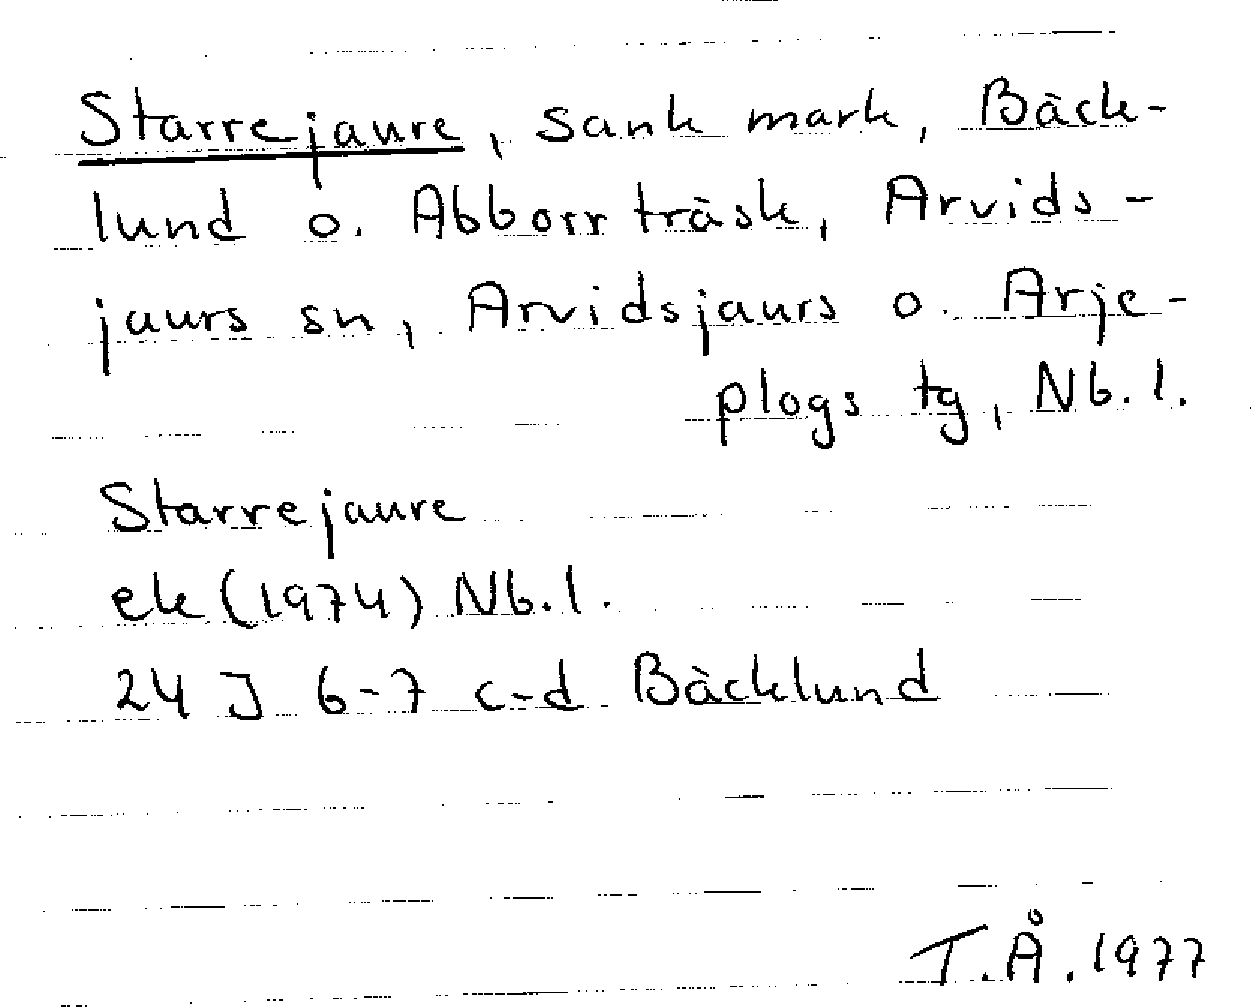 Starrejaure, sank mark, Bäck-
lund o. Abborrträsk, Arvids-
jaurs sn, Arvidsjaurs o. Arje-
plogs tg, Nb. l.
Starrejaure
ek (1974) Nb. l.
24 J 6-7 c-d Bäcklund
T.Å. 1977